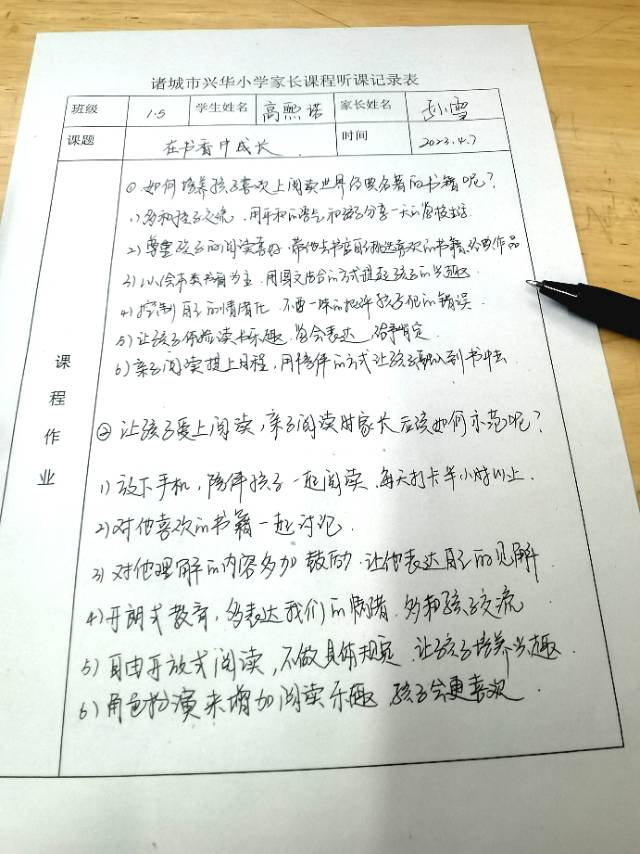 诸城市兴华小学家长课程听课记录表
班级 1.5 学生姓名 高熙诺 家长姓名 孙雪
课题 在书香中成长 时间 2023.4.7
课程作业
①如何培养孩子喜欢上阅读世界经典名著的书籍呢?
1)多和孩子交流,用平和的语气和孩子分享一天的学校生活
2)尊重孩子的阅读喜好,带他去书店自行挑选喜欢的书籍、经典作品
3)以绘本类书籍为主,用图文结合的方式提起孩子的兴趣
4)控制自己的情绪化,不要一味的批评孩子犯的错误
5)让孩子体验读书乐趣,学会表达,给予肯定
6)亲子阅读提上日程,用陪伴的方式让孩子融入到书中去
②让孩子爱上阅读,亲子阅读时家长应该如何示范呢?
1)放下手机,陪伴孩子一起阅读,每天打卡半小时以上.
2)对他喜欢的书籍一起讨论.
3)对他理解的内容多加鼓励,让他表达自己的见解
4)开朗式教育,多表达我们的情绪,多和孩子交流
5)自由开放式阅读,不做具体规定,让孩子培养兴趣.
6)角色扮演来增加阅读乐趣,孩子会更喜欢.